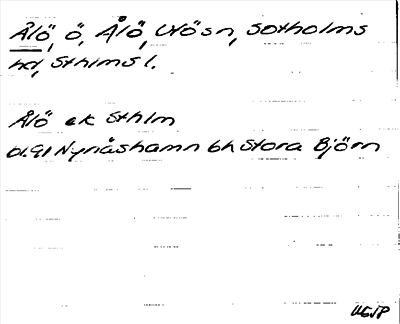 Ålö, ö, Ålö, Utö sn, Sotholms
hd, Sthlms l.
Ålö ek Sthlm
bl. 91 Nynäshamn 6h Stora Björn